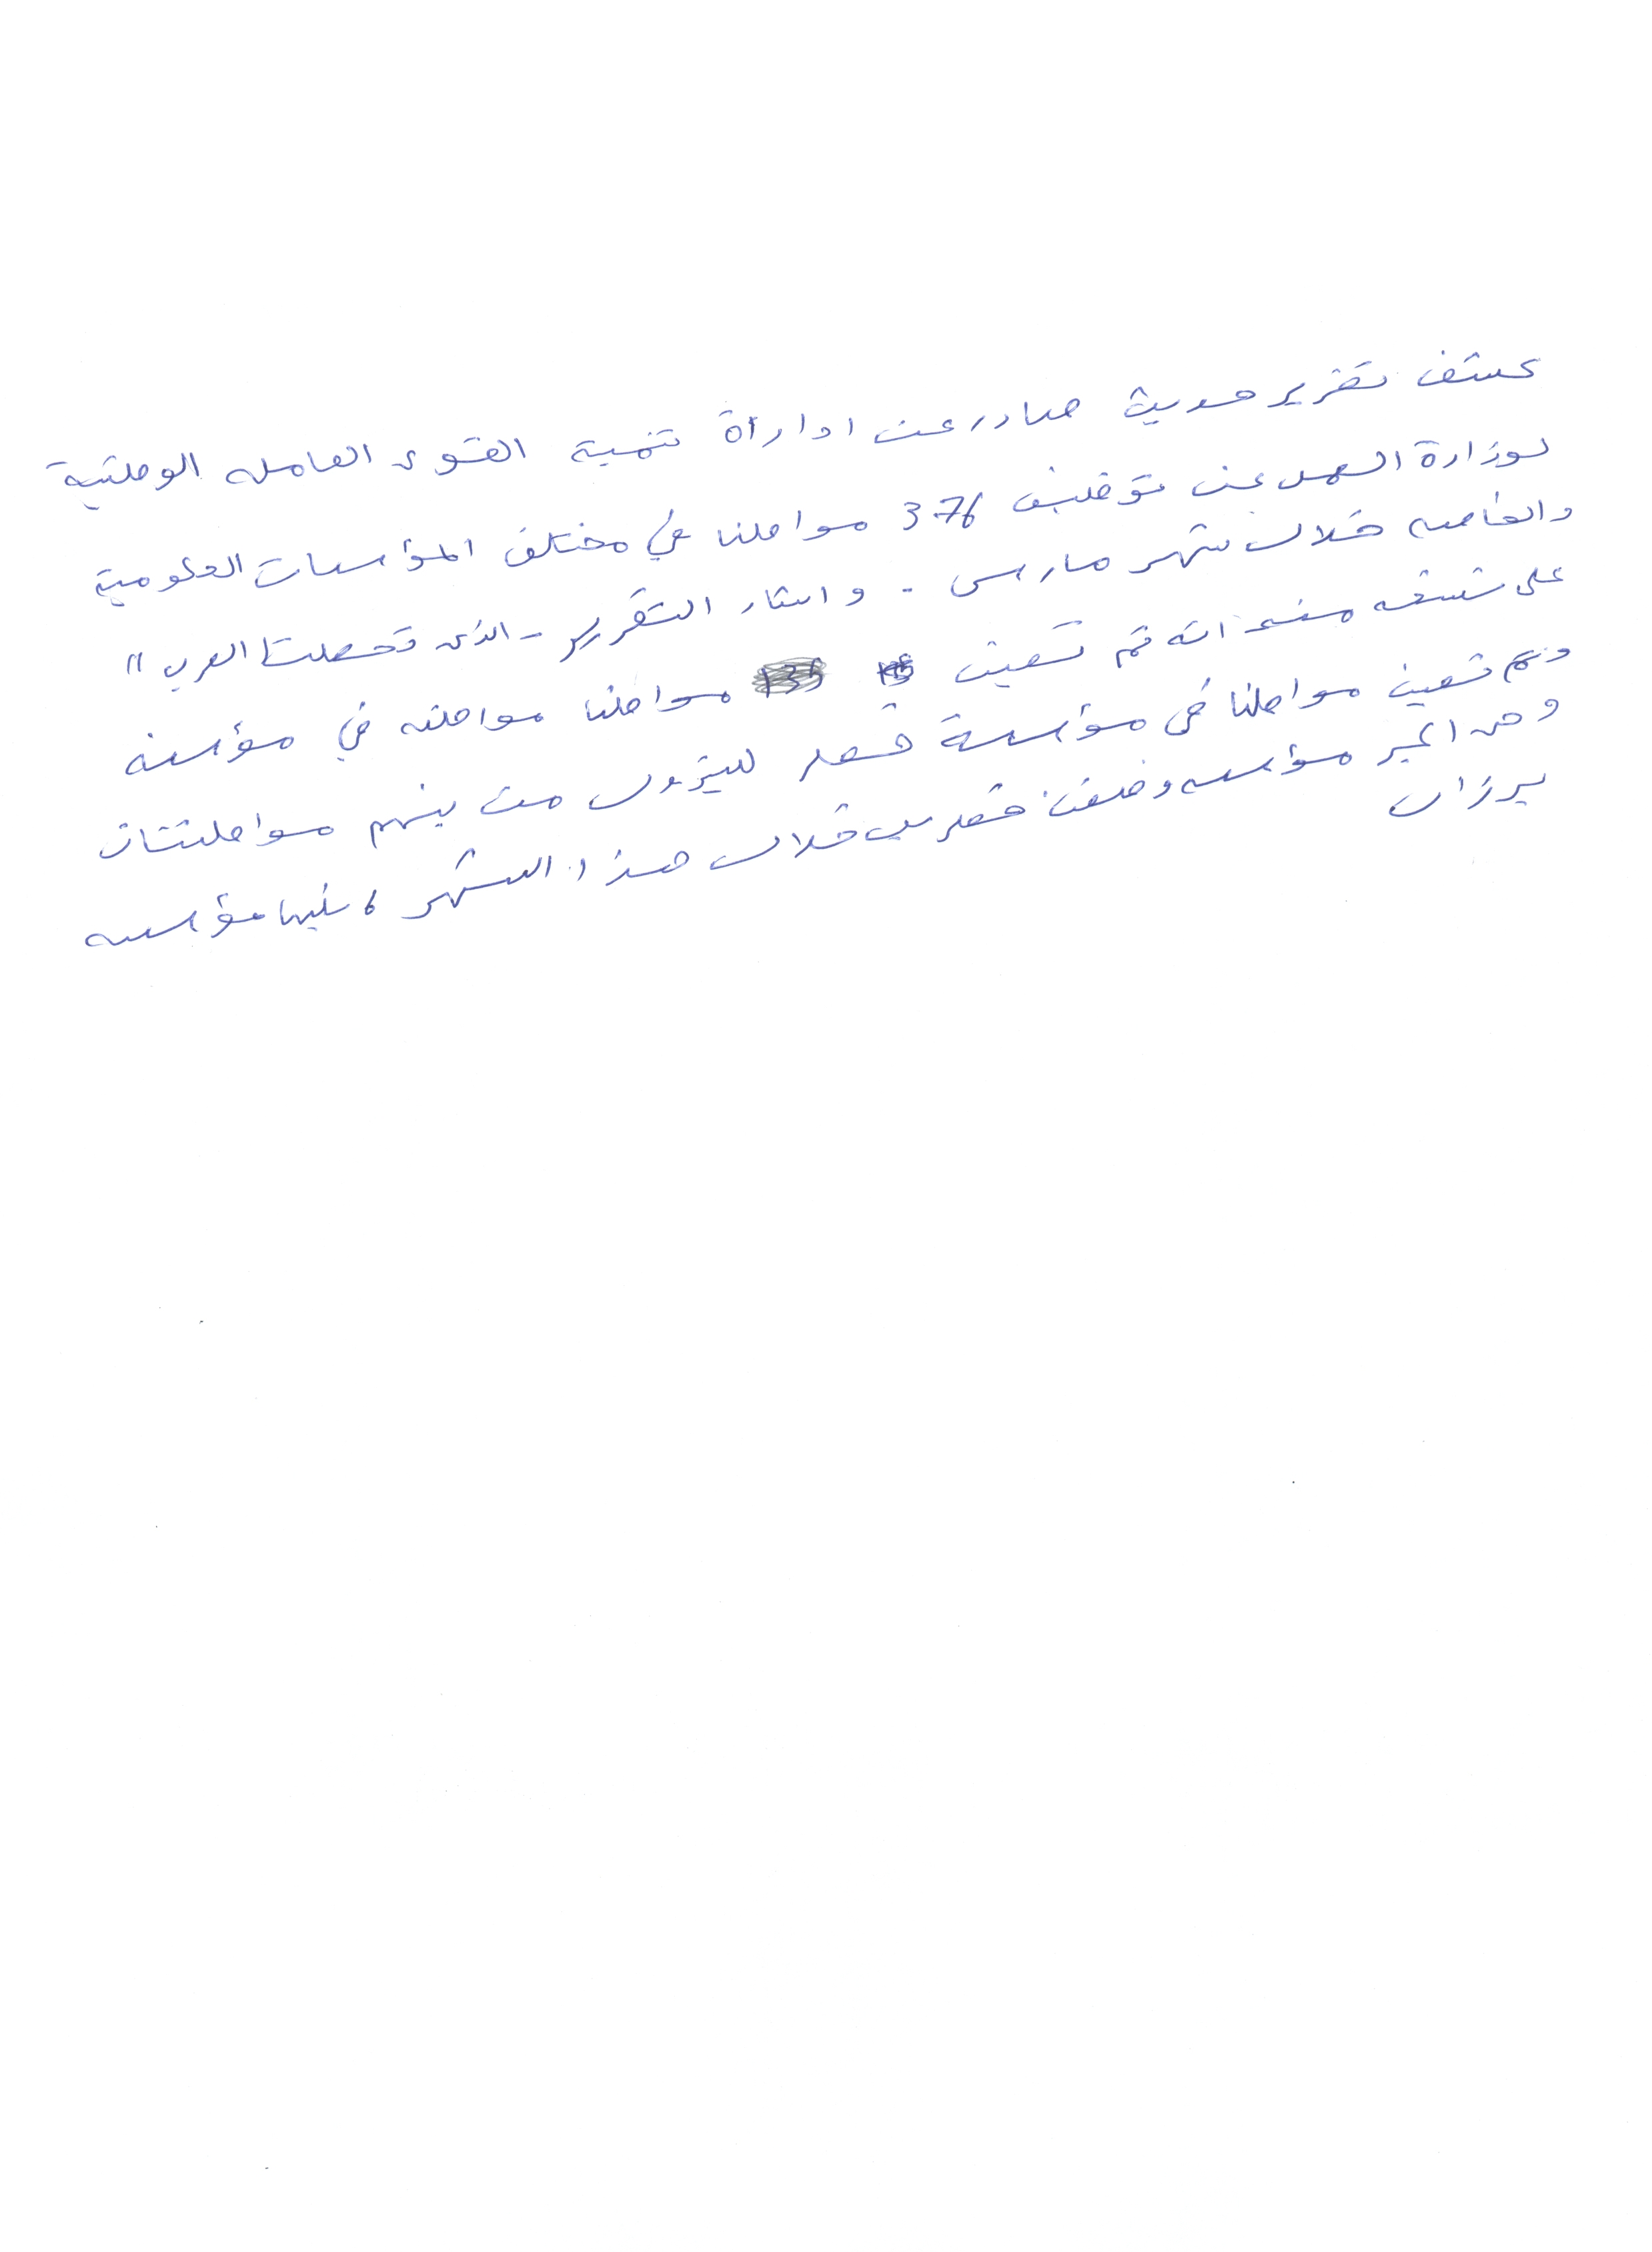 كشف تقرير حديث صادر عن اداراة تنمية القوى العامله الوطنية
لوزارة العمل عن توظيف 376 مواطنا في مختلف المؤسسات الحكومية
والخاصه خلال شهر مارس . واشار التقرير - الذى تحصلت العرب "
على نسخه منه انه تم تعيين مواطنا مواطنه في مؤسسه
وتم تعيين مواطنا في مؤسسة قطر للبترول من بينهم مواطنتان
وهى اكبر مؤسسه وظفت قطريين خلال هذا الشهر ، تليها مؤسسه
برزان